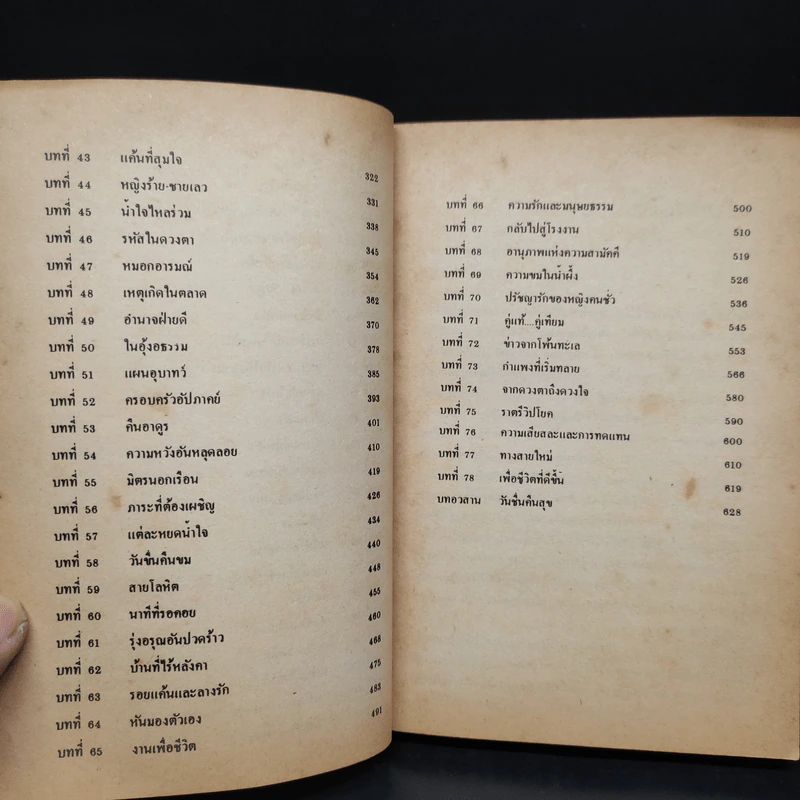 บทที่ 43 แค้นที่สุมใจ 322
บทที่ 44 หญิงร้าย-ชายเลว 331
บทที่ 45 น้ำใจไหลร่วม 338
บทที่ 46 รหัสในดวงตา 345
บทที่ 47 หมอกอารมณ์ 354
บทที่ 48 เหตุเกิดในตลาด 362
บทที่ 49 อำนาจฝ่ายดี 370
บทที่ 50 ในอุ้งอธรรม 378
บทที่ 51 แผนอุบาทว์ 385
บทที่ 52 ครอบครัวอัปภาคย์ 393
บทที่ 53 คืนอาดูร 401
บทที่ 54 ความหวังอันหลุดลอย 410
บทที่ 55 มิตรนอกเรือน 419
บทที่ 56 ภาระที่ต้องเผชิญ 426
บทที่ 57 แต่ละหยดน้ำใจ 434
บทที่ 58 วันขื่นคืนขม 440
บทที่ 59 สายโลหิต 448
บทที่ 60 นาทีที่รอคอย 455
บทที่ 61 รุ่งอรุณอันปวดร้าว 460
บทที่ 62 บ้านที่ไร้หลังคา 468
บทที่ 63 รอยแค้นและลางรัก 475
บทที่ 64 หันมองตัวเอง 483
บทที่ 65 งานเพื่อชีวิต 491
บทที่ 66 ความรักและมนุษยธรรม 500
บทที่ 67 กลับไปสู่โรงงาน 510
บทที่ 68 อานุภาพแห่งความสามัคคี 519
บทที่ 69 ความขมในน้ำผึ้ง 526
บทที่ 70 ปรัชญารักของหญิงคนชั่ว 536
บทที่ 71 คู่แท้....คู่เทียม 545
บทที่ 72 ข่าวจากโพ้นทะเล 553
บทที่ 73 กำแพงที่เริ่มทลาย 566
บทที่ 74 จากดวงตาถึงดวงใจ 580
บทที่ 75 ราตรีวิปโยค 590
บทที่ 76 ความเสียสละและการทดแทน 600
บทที่ 77 ทางสายใหม่ 610
บทที่ 78 เพื่อชีวิตที่ดีขึ้น 619
บทอวสาน วันชื่นคืนสุข 628